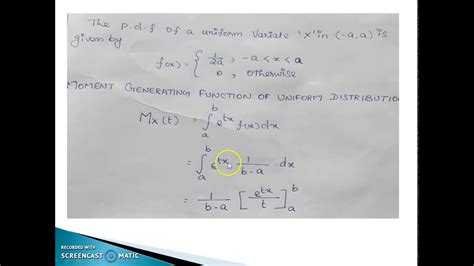 The p.d.f of a uniform variate 'x' in (-a,a) is
given by
f(x) = { 1/2a , -a < x < a
0 , otherwise
MOMENT GENERATING FUNCTION OF UNIFORM DISTRIBUTIO
Mx(t) = ∫_a^b e^{tx} f(x) dx
= ∫_a^b e^{tx} 1/(b-a) · dx
= 1/(b-a) [e^{tx}/t]_a^b
RECORDED WITH
SCREENCAST MATIC